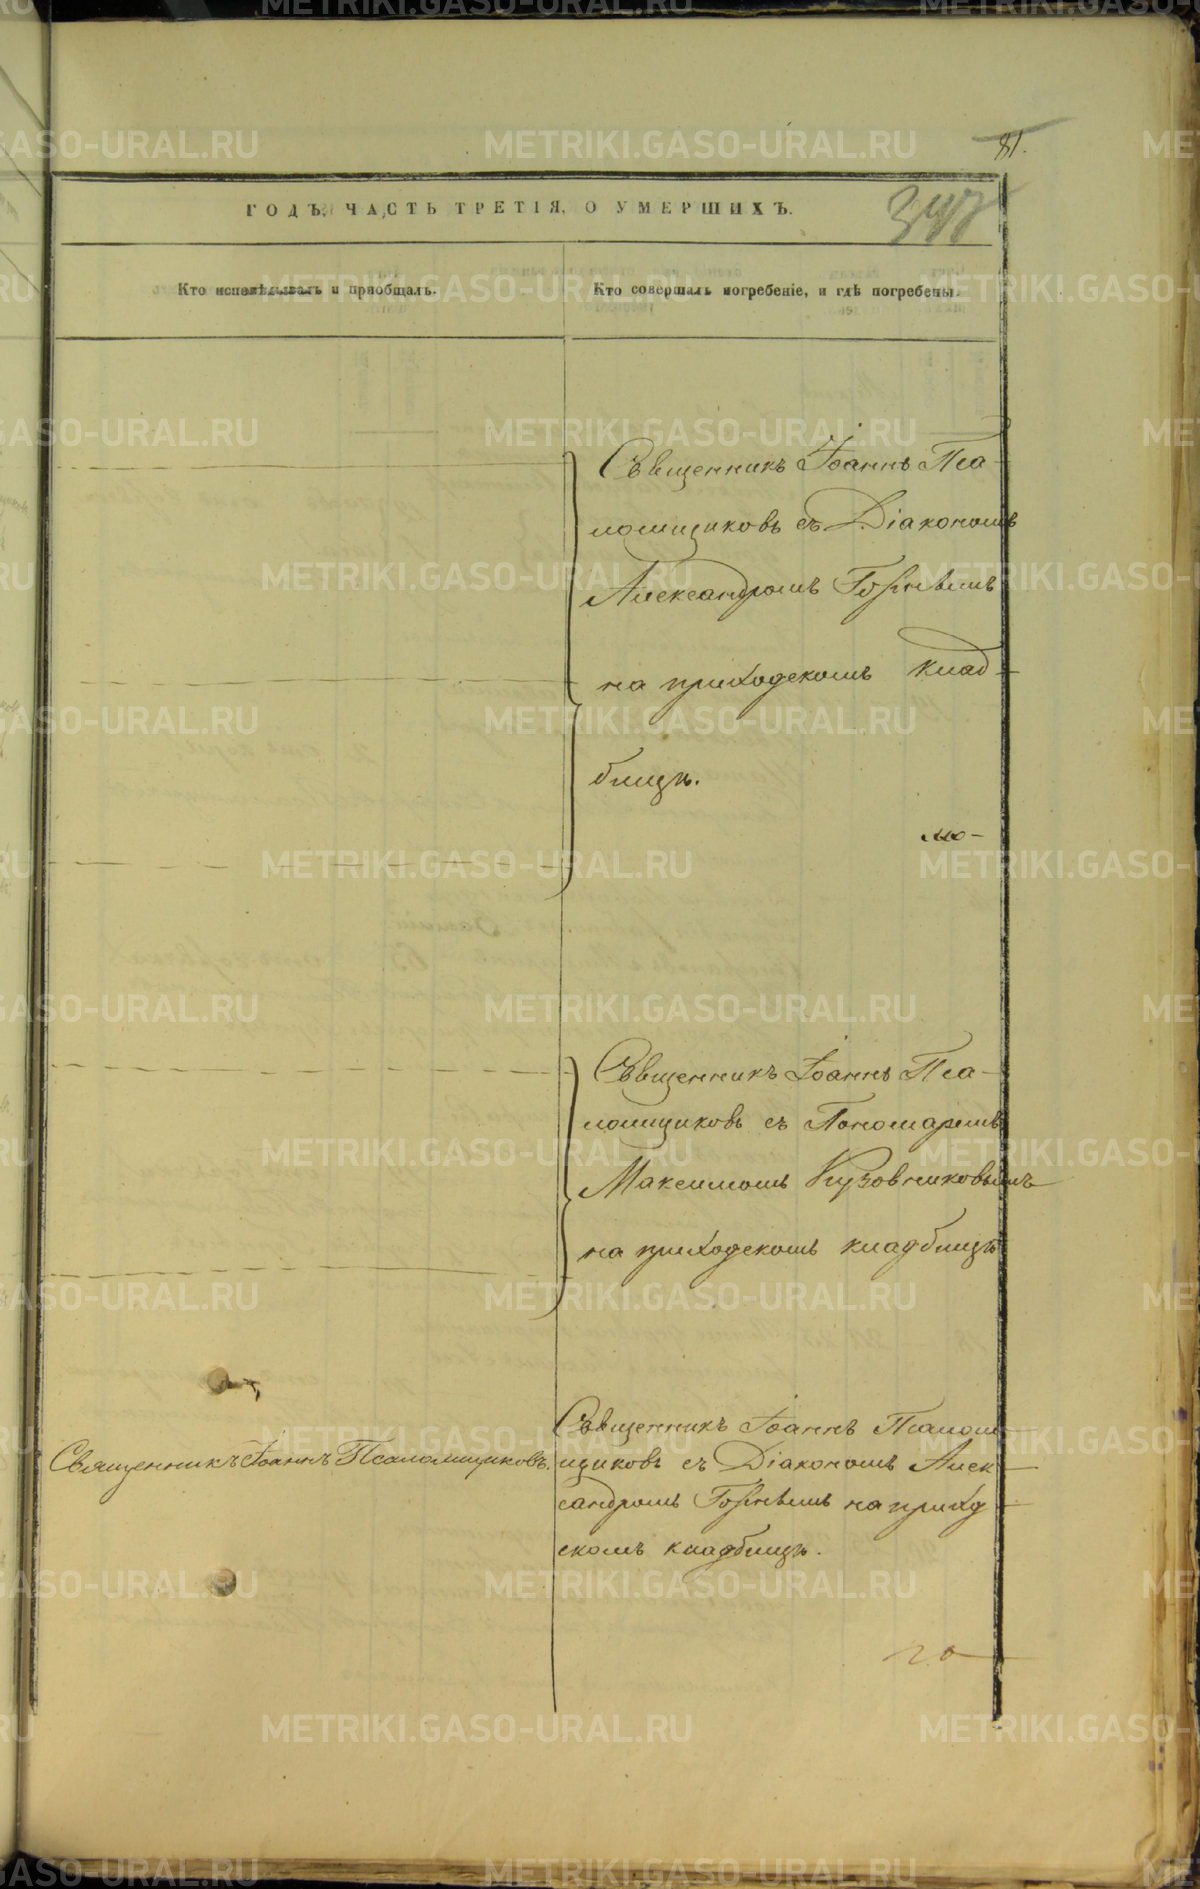 81.
ГОДЪ, ЧАСТЬ ТРЕТІЯ, О УМЕРШИХЪ.
Кто исповѣдывалъ и пріобщалъ.
Кто совершалъ погребеніе, и гдѣ погребены.
Священникъ Іоаннъ Пса-
ломщиковъ съ Діакономъ
Александромъ
на приходскомъ клад-
бищѣ.
Священникъ Іоаннъ Пса-
ломщиковъ съ Пономаремъ
Максимомъ Кузовниковымъ
на приходскомъ кладбищѣ
Священникъ Іоаннъ Псаломщиковъ.
Священникъ Іоаннъ Псалом-
щиковъ съ Діакономъ Алек-
сандромъ на приход-
скомъ кладбищѣ.
METRIKI.GASO-URAL.RU